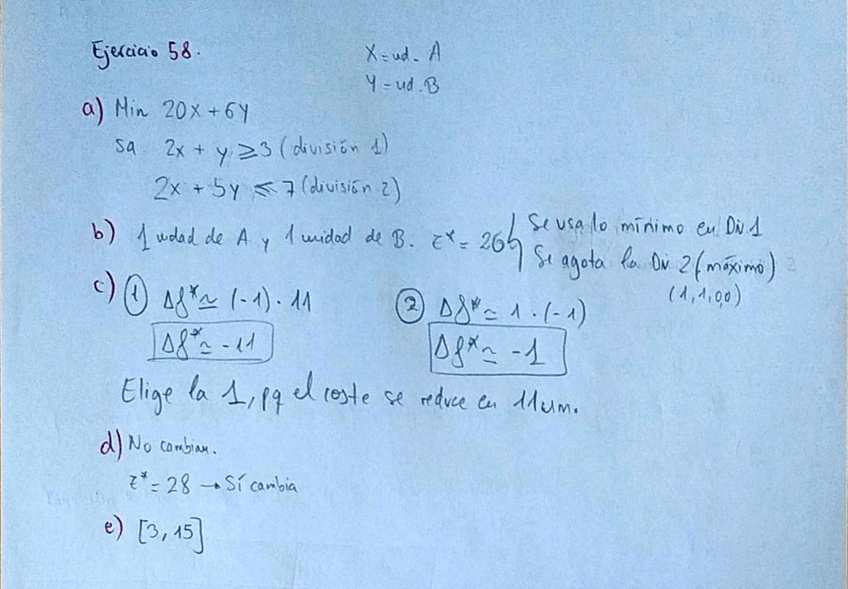 Ejercicio 58.
X = ud. A
Y = ud. B
a) Min 20X + 6Y
sa 2x + y ≥ 3 (división 1)
2x + 5y ≤ 7 (división 2)
b) 1 udad de A y 1 unidad de B. z* = 26
Se usa lo mínimo en Div 1
Se agota la Div 2 (máximo)
(1,1,0,0)
c) ① Δf* ≃ (-1) · 11
Δf* ≃ -11
② Δf* ≃ 1 · (-1)
Δf* ≃ -1
Elige la 1, pq el coste se reduce en 11um.
d) No cambian.
z* = 28 → Sí cambia
e) [3, 15]